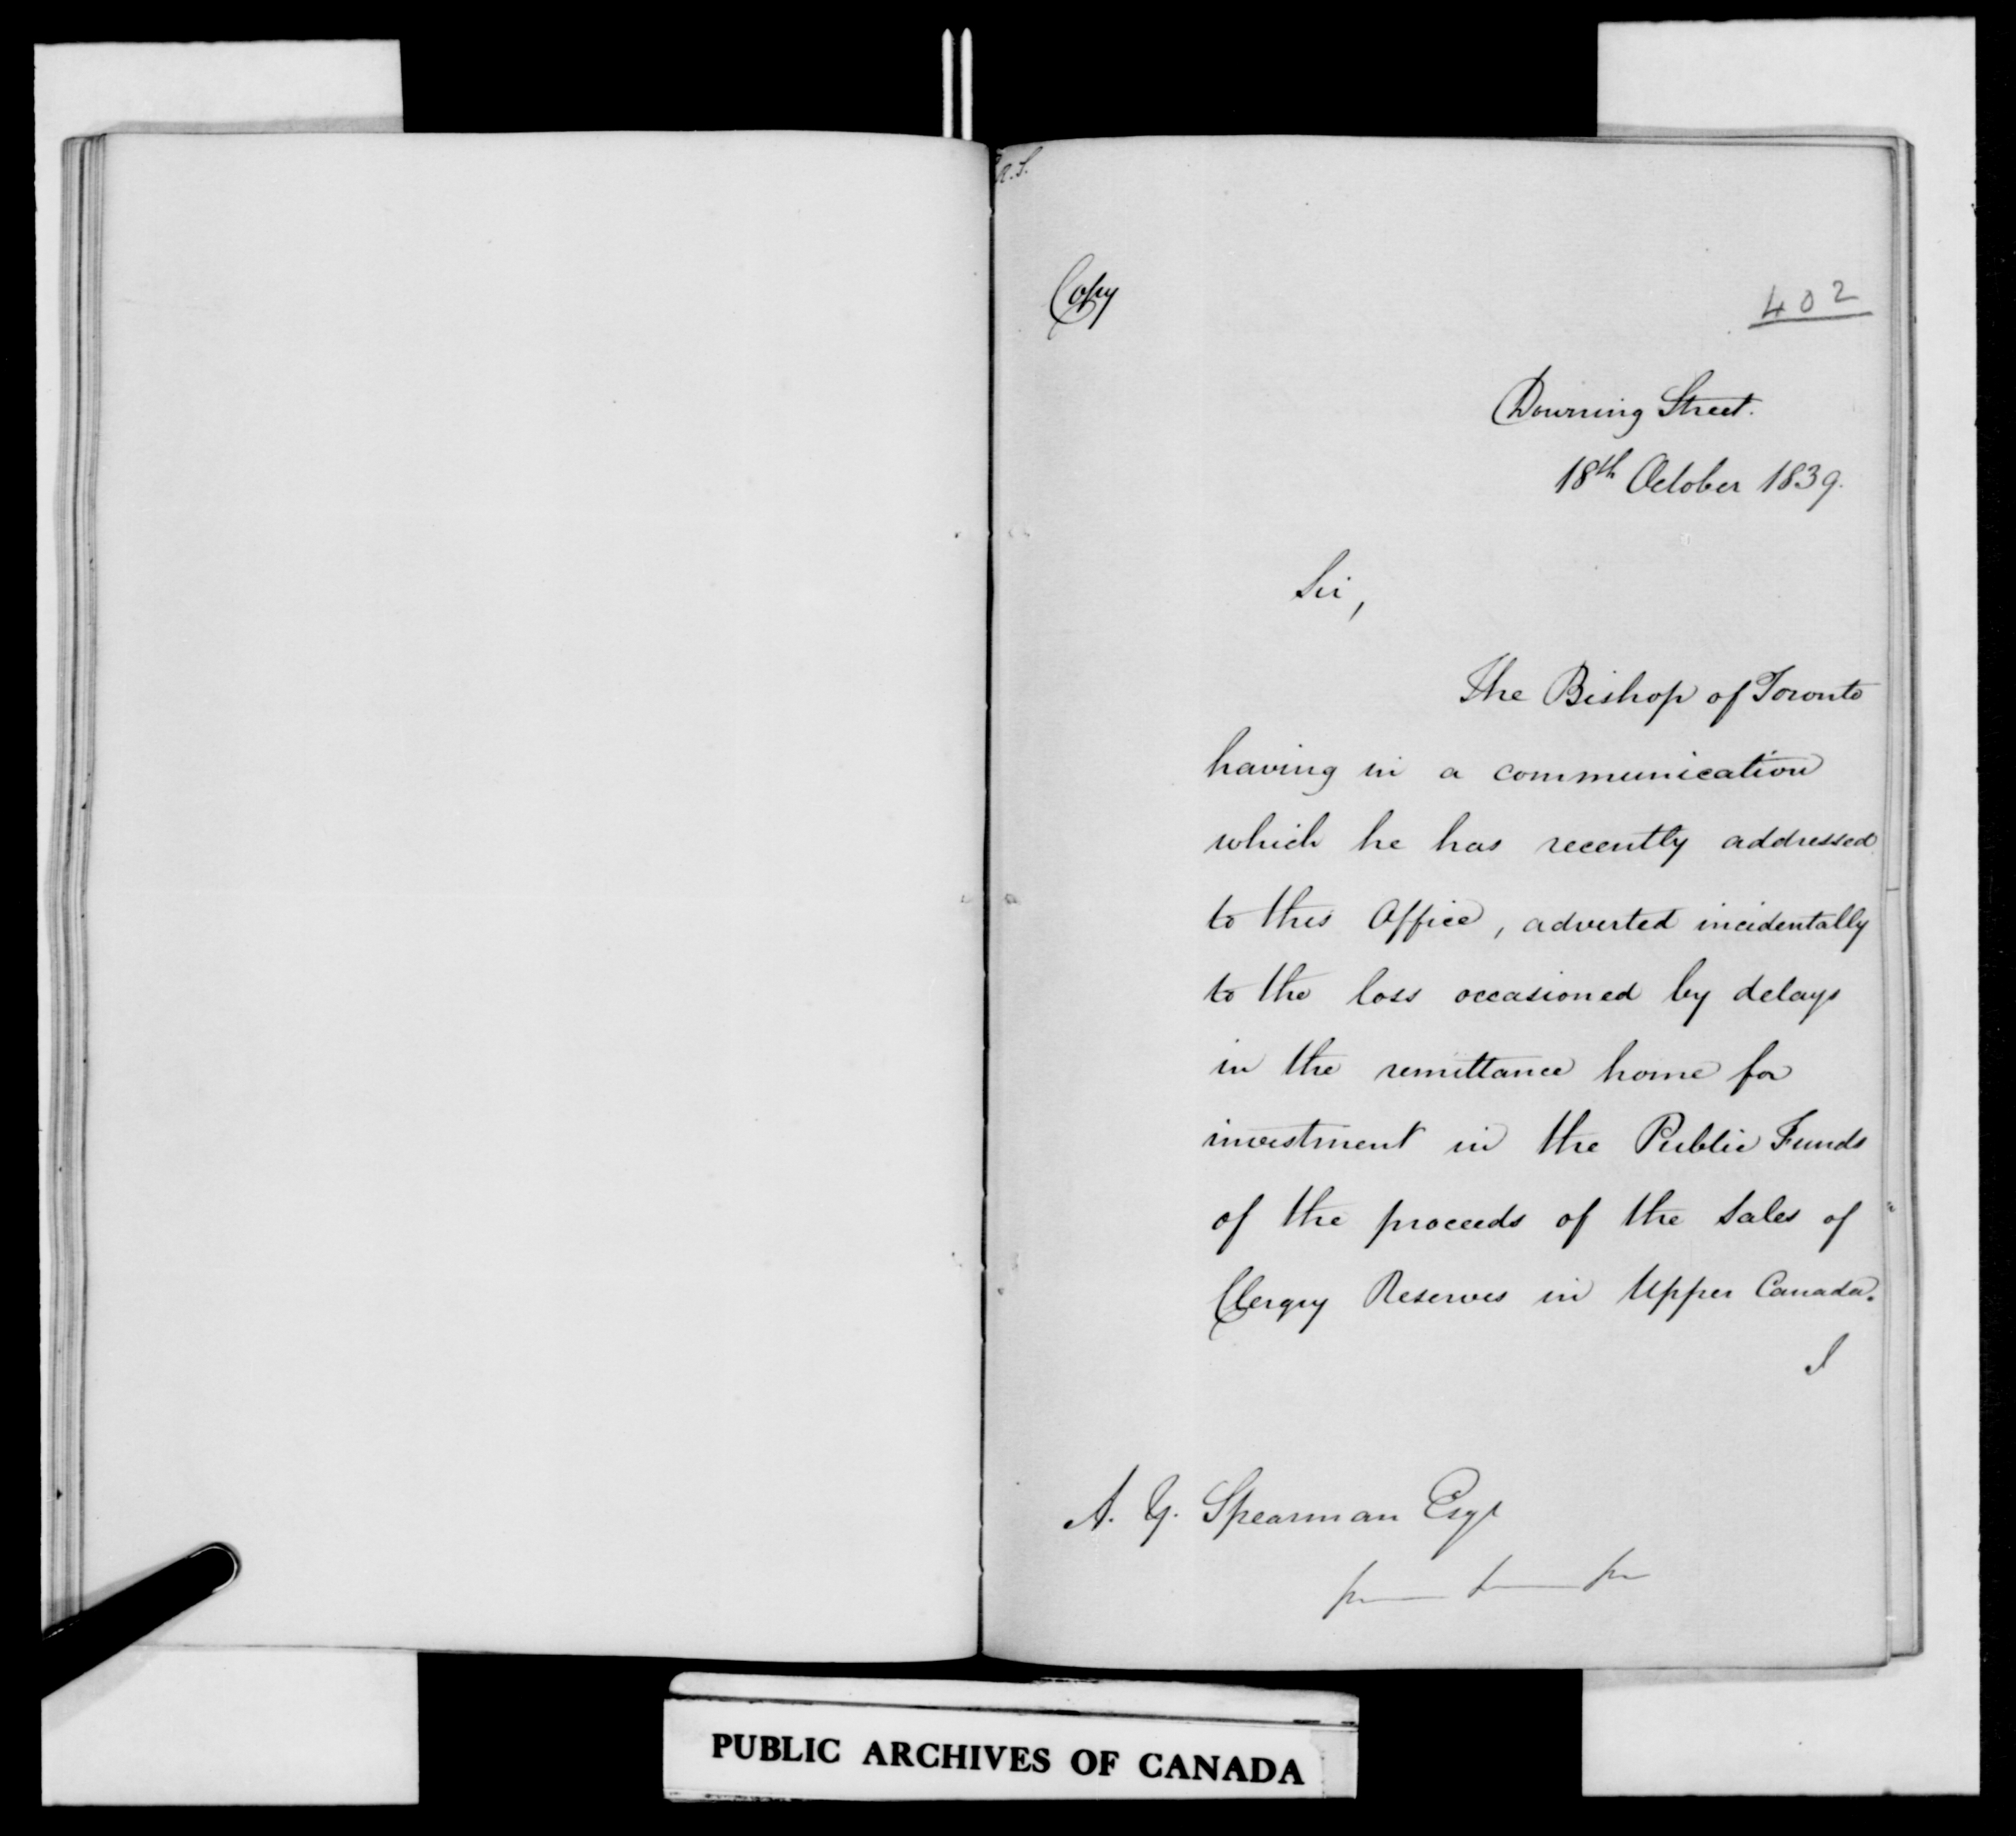 R.S.
Copy
402
Downing Street.
18th October 1839.
Sir,
The Bishop of Toronto
having in a communication
which he has recently addressed
to this Office, adverted incidentally
to the loss occasioned by delays
in the remittance home for
investment in the Public Funds
of the proceeds of the Sales of
Clergy Reserves in Upper Canada.
I
A. Y. Spearman Esqr
PUBLIC ARCHIVES OF CANADA